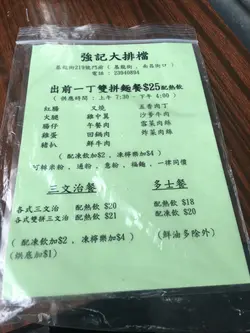 強記大排檔
電話：23940894
出前一丁雙拼麵餐$25配熱飲
(供應時間：上午7:30 - 下午4:00)
紅腸 叉燒 五香肉丁
火腿 雞中翼 沙爹牛肉
腸仔 午餐肉 雪菜肉絲
雞蛋 回鍋肉 炸菜肉絲
豬扒 鮮牛肉
可轉米粉，通粉，意粉，福麵，一律同價
三文治餐 多士餐
各式三文治 配熱飲 $20 配熱飲 $18
各式雙拼三文治 配熱飲 $21 配凍飲 $20
(配凍飲加$2，凍檸樂加$4) (鮮油多除外)
(烘底加$1)